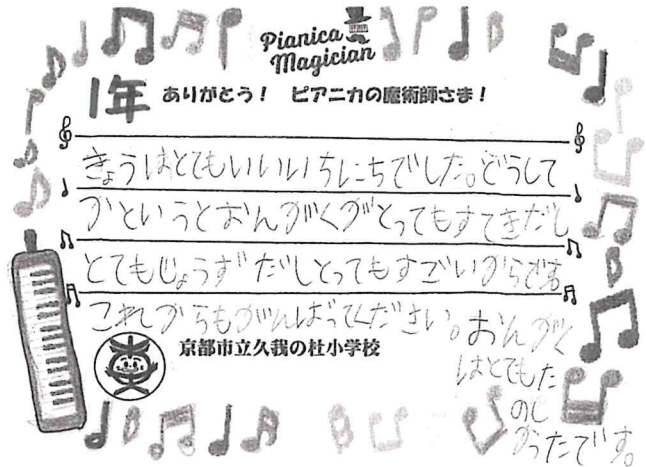 Pianica
Magician
1年 ありがとう! ピアニカの魔術師さま!
きょうはとてもいいいちにちでした。どうして
かというとおんがくがとってもすてきだし
とてもじょうずだしとってもすごいからです
これからもがんばってください。
京都市立久我の杜小学校
おんがく
はとてもた
のし
かったです。